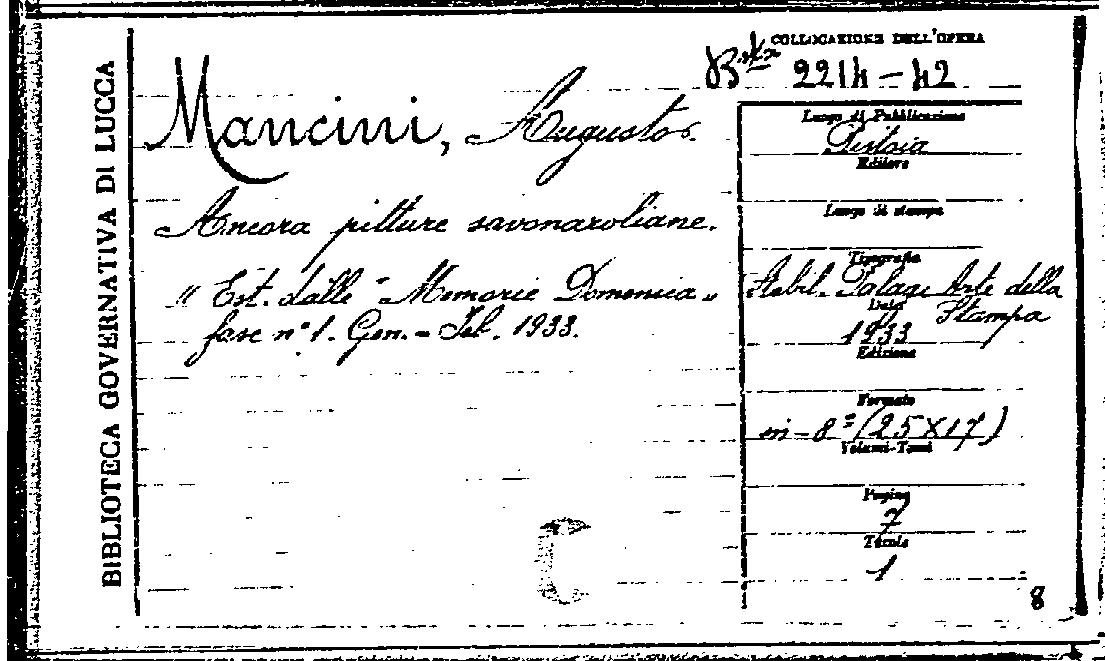 BIBLIOTECA GOVERNATIVA DI LUCCA
COLLOCAZIONE DELL'OPERA
Bta 2214-42
Mancini, Augusto.
Ancora pitture savonaroliane.
" Est. dalle "Memorie Domenica"
fasc n° 1. Gen. - Feb. 1933.
Luogo di Pubblicazione
Pistoia
Editore
Luogo di stampa
Tipografia
Stabil. Arte della
Stampa
Data
1933
Edizione
Formato
in-8° (25X17)
Volumi-Tomi
Pagine
7
Tavole
1
C
8